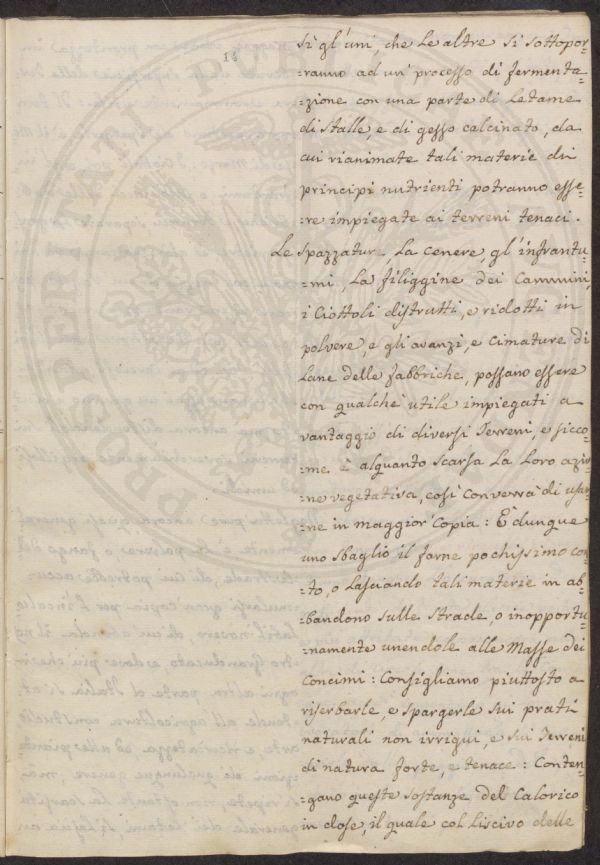 si gl'uni, che le altre si sottopor-
-ranno ad un processo di fermenta-
-zione con una parte di letame
di stalle e di gesso calcinato, da
cui rianimate tali materie di
principi nutrienti potranno esse-
-re impiegate ai terreni tenaci.
Le spazzature, la cenere, gl'infrantu-
-mi, la filiggine dei Cammini,
i Ciottoli distrutti, e ridotti in
polvere, e gli avanzi, e cimature di
Lane delle fabbriche, possano essere
con qualche utile impiegati a
vantaggio di diversi Terreni, e sicco-
-me è alquanto scarsa la loro azio-
-ne vegetativa, così converrà di usar-
-ne in maggior copia: È dunque
uno sbaglio il farne pochissimo con-
-to, o lasciando tali materie in ab-
-bandono sulle strade, o inopportu-
-namente unendole alle Masse dei
Concimi: Consigliamo piuttosto a
riserbarle, e spargerle sui prati
naturali non irrigui, e sui Terreni
di natura forte, e tenace: Conten-
-gano queste sostanze del Calorico
in dose, il quale col liscivo delle